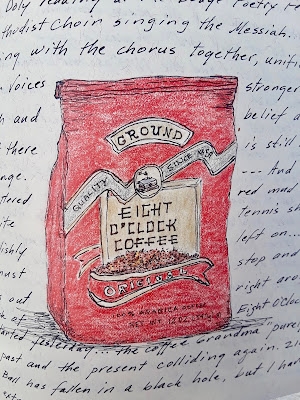 Daly reading at the Poetry
thodist Choir singing the Messiah.
ing with the chorus together, unifi
Voices stronger
h and belief a
there is still
nge. --- And
tered red mud
ite tennis sh
lishly left on...
must stop and
s out right are
k of Eight O'Clo
GROUND
QUALITY SINCE
EIGHT
O'CLOCK
COFFEE
ORIGINAL
100% ARABICA COFFEE
NET WT 12 OZ
started yesterday... the coffee Grandma pure
past and the present colliding again.
Ball has fallen in a black hole, but I ha